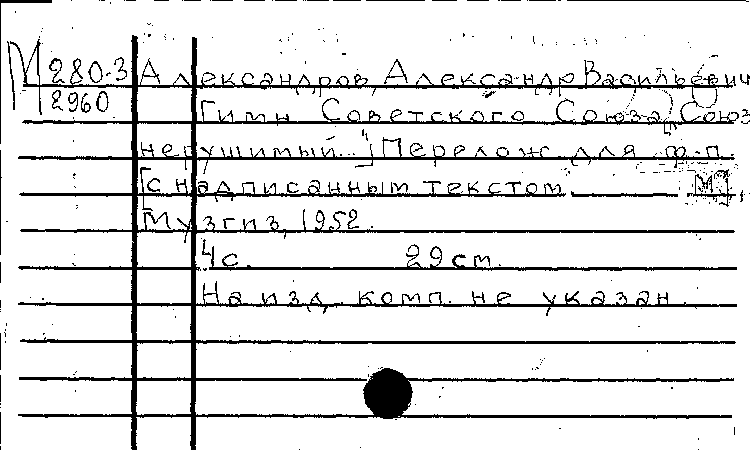 М 280-3 Александров, Александр Васильевич
2960 Гимн Советского Союза ["Союз
нерушимый..."] Перелож. для ф-п.
[с надписанным текстом. М.],
Музгиз, 1952.
4 с. 29 см.
На изд. комп. не указан.